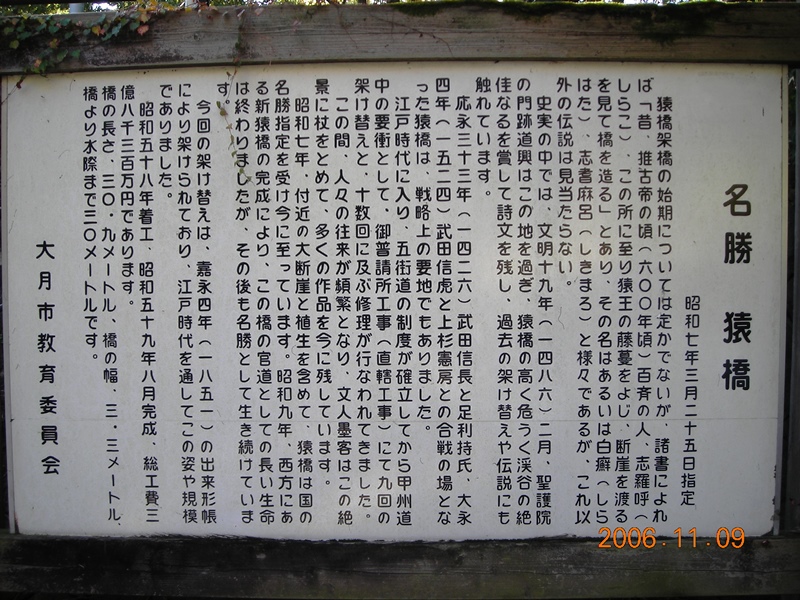 名勝 猿橋
昭和七年三月二十五日指定
猿橋架橋の始期については定かでないが、諸書によれ
ば「昔、推古帝の頃(六〇〇年頃)百済の人、志羅呼(
しらこ)、この所に至り猿王の藤蔓をよじ、断崖を渡る
を見て橋を造る」とあり、その名はあるいは白癬(しら
はた)、志耆麻呂(しきまろ)と様々であるが、これ以
外の伝説は見当たらない。
史実の中では、文明十九年(一四八六)二月、聖護院
の門跡道興はこの地を過ぎ、猿橋の高く危うく渓谷の絶
佳なるを賞して詩文を残し、過去の架け替えや伝説にも
触れています。
応永三十三年(一四二六)武田信長と足利持氏、大永
四年(一五二四)武田信虎と上杉憲房との合戦の場とな
った猿橋は、戦略上の要地でもありました。
江戸時代に入り、五街道の制度が確立してから甲州道
中の要衝として、御普請所工事(直轄工事)にて九回の
架け替えと、十数回に及ぶ修理が行なわれてきました。
この間、人々の往来が頻繁となり、文人墨客はこの絶
景に杖をとめて、多くの作品を今に残しています。
昭和七年、付近の大断崖と植生を含めて、猿橋は国の
名勝指定を受け今に至っています。昭和九年、西方にあ
る新猿橋の完成により、この橋の官道としての長い生命
は終わりましたが、その後も名勝として生き続けていま
す。
今回の架け替えは、嘉永四年(一八五一)の出来形帳
により架けられており、江戸時代を通してこの姿や規模
でありました。
昭和五十八年着工、昭和五十九年八月完成、総工費三
億八千三百万円であります。
橋の長さ、三〇・九メートル、橋の幅、三・三メートル、
橋より水際まで三〇メートルです。
大月市教育委員会
2006.11.09